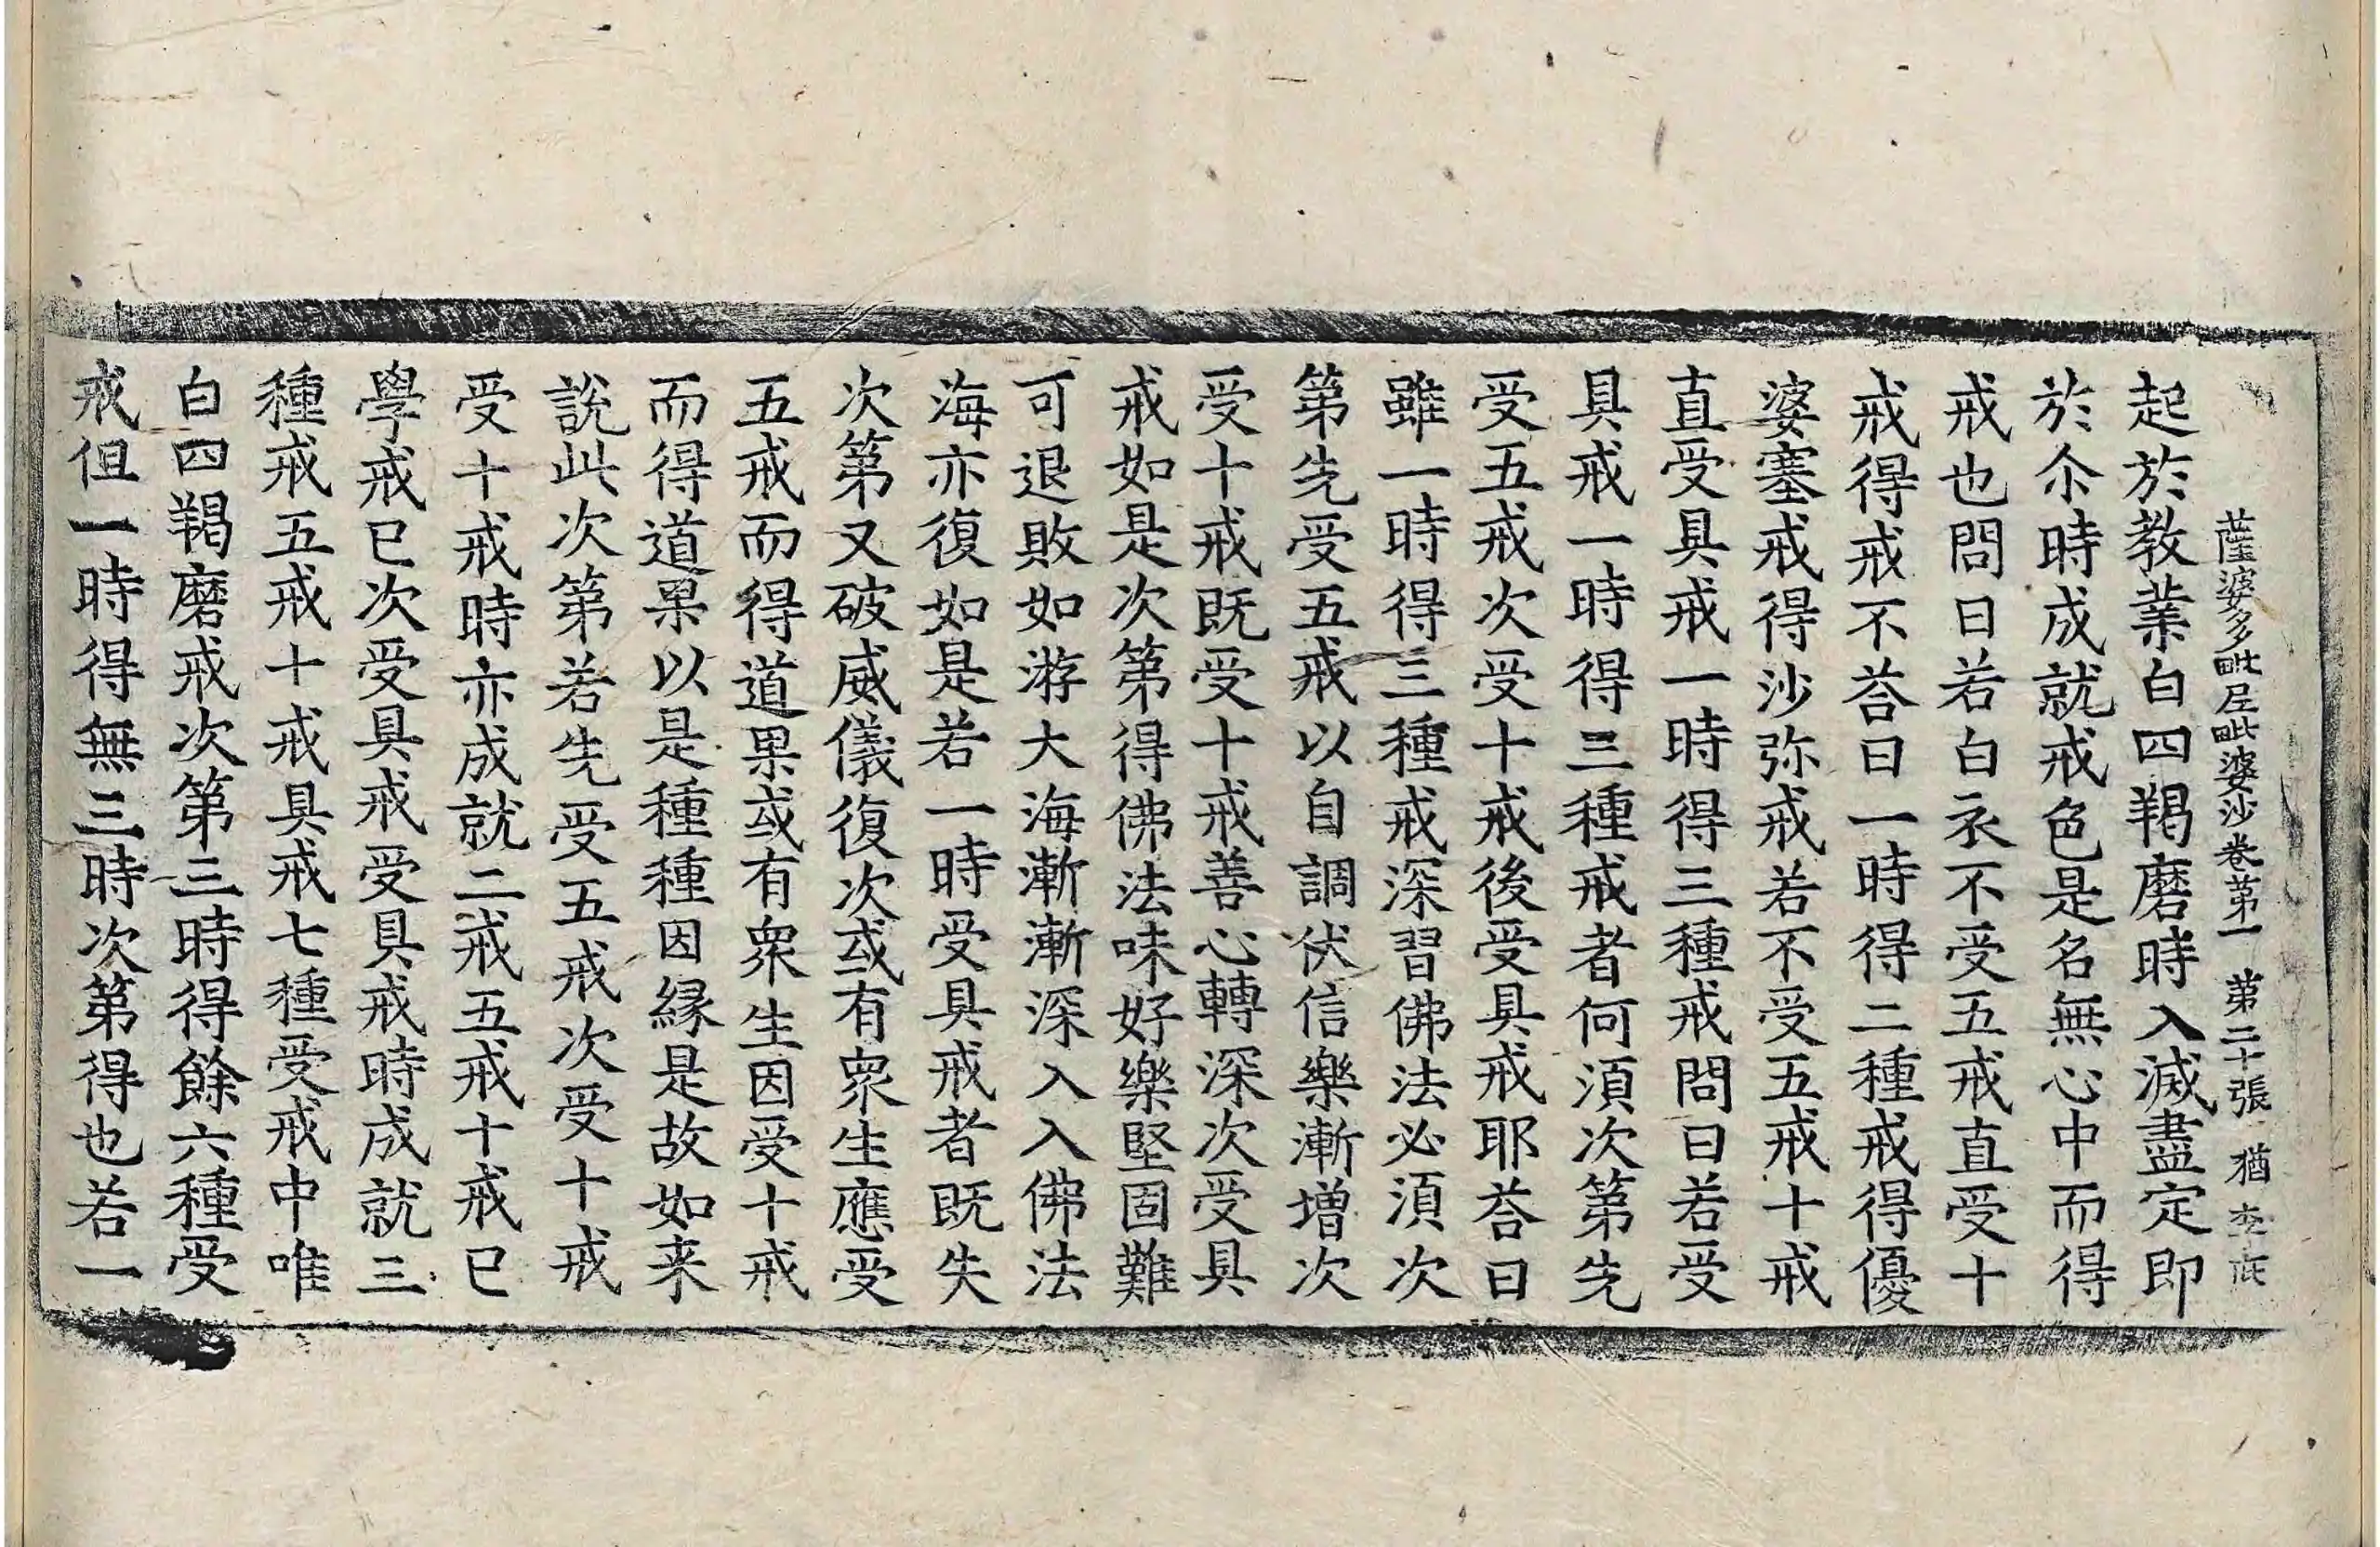 薩婆多毗尼毗婆沙卷第一 第二十張 猶
起於教業白四羯磨時入滅盡定即
於尒時成就戒色是名無心中而得
戒也問曰若白衣不受五戒直受十
戒得戒不荅曰一時得二種戒得優
婆塞戒得沙弥戒若不受五戒十戒
直受具戒一時得三種戒問曰若受
具戒一時得三種戒者何湏次第先
受五戒次受十戒後受具戒耶荅曰
雖一時得三種戒深習佛法必湏次
第先受五戒以自調伏信樂漸增次
受十戒既受十戒善心轉深次受具
戒如是次第得佛法味好樂堅固難
可退敗如游大海漸漸深入入佛法
海亦復如是若一時受具戒者既失
次第又破威儀復次或有衆生應受
五戒而得道果或有衆生因受十戒
而得道果以是種種因縁是故如来
說此次第若先受五戒次受十戒
受十戒時亦成就二戒五戒十戒已
學戒已次受具戒受具戒時成就三
種戒五戒十戒具戒七種受戒中唯
白四羯磨戒次第三時得餘六種受
戒但一時得無三時次第得也若一